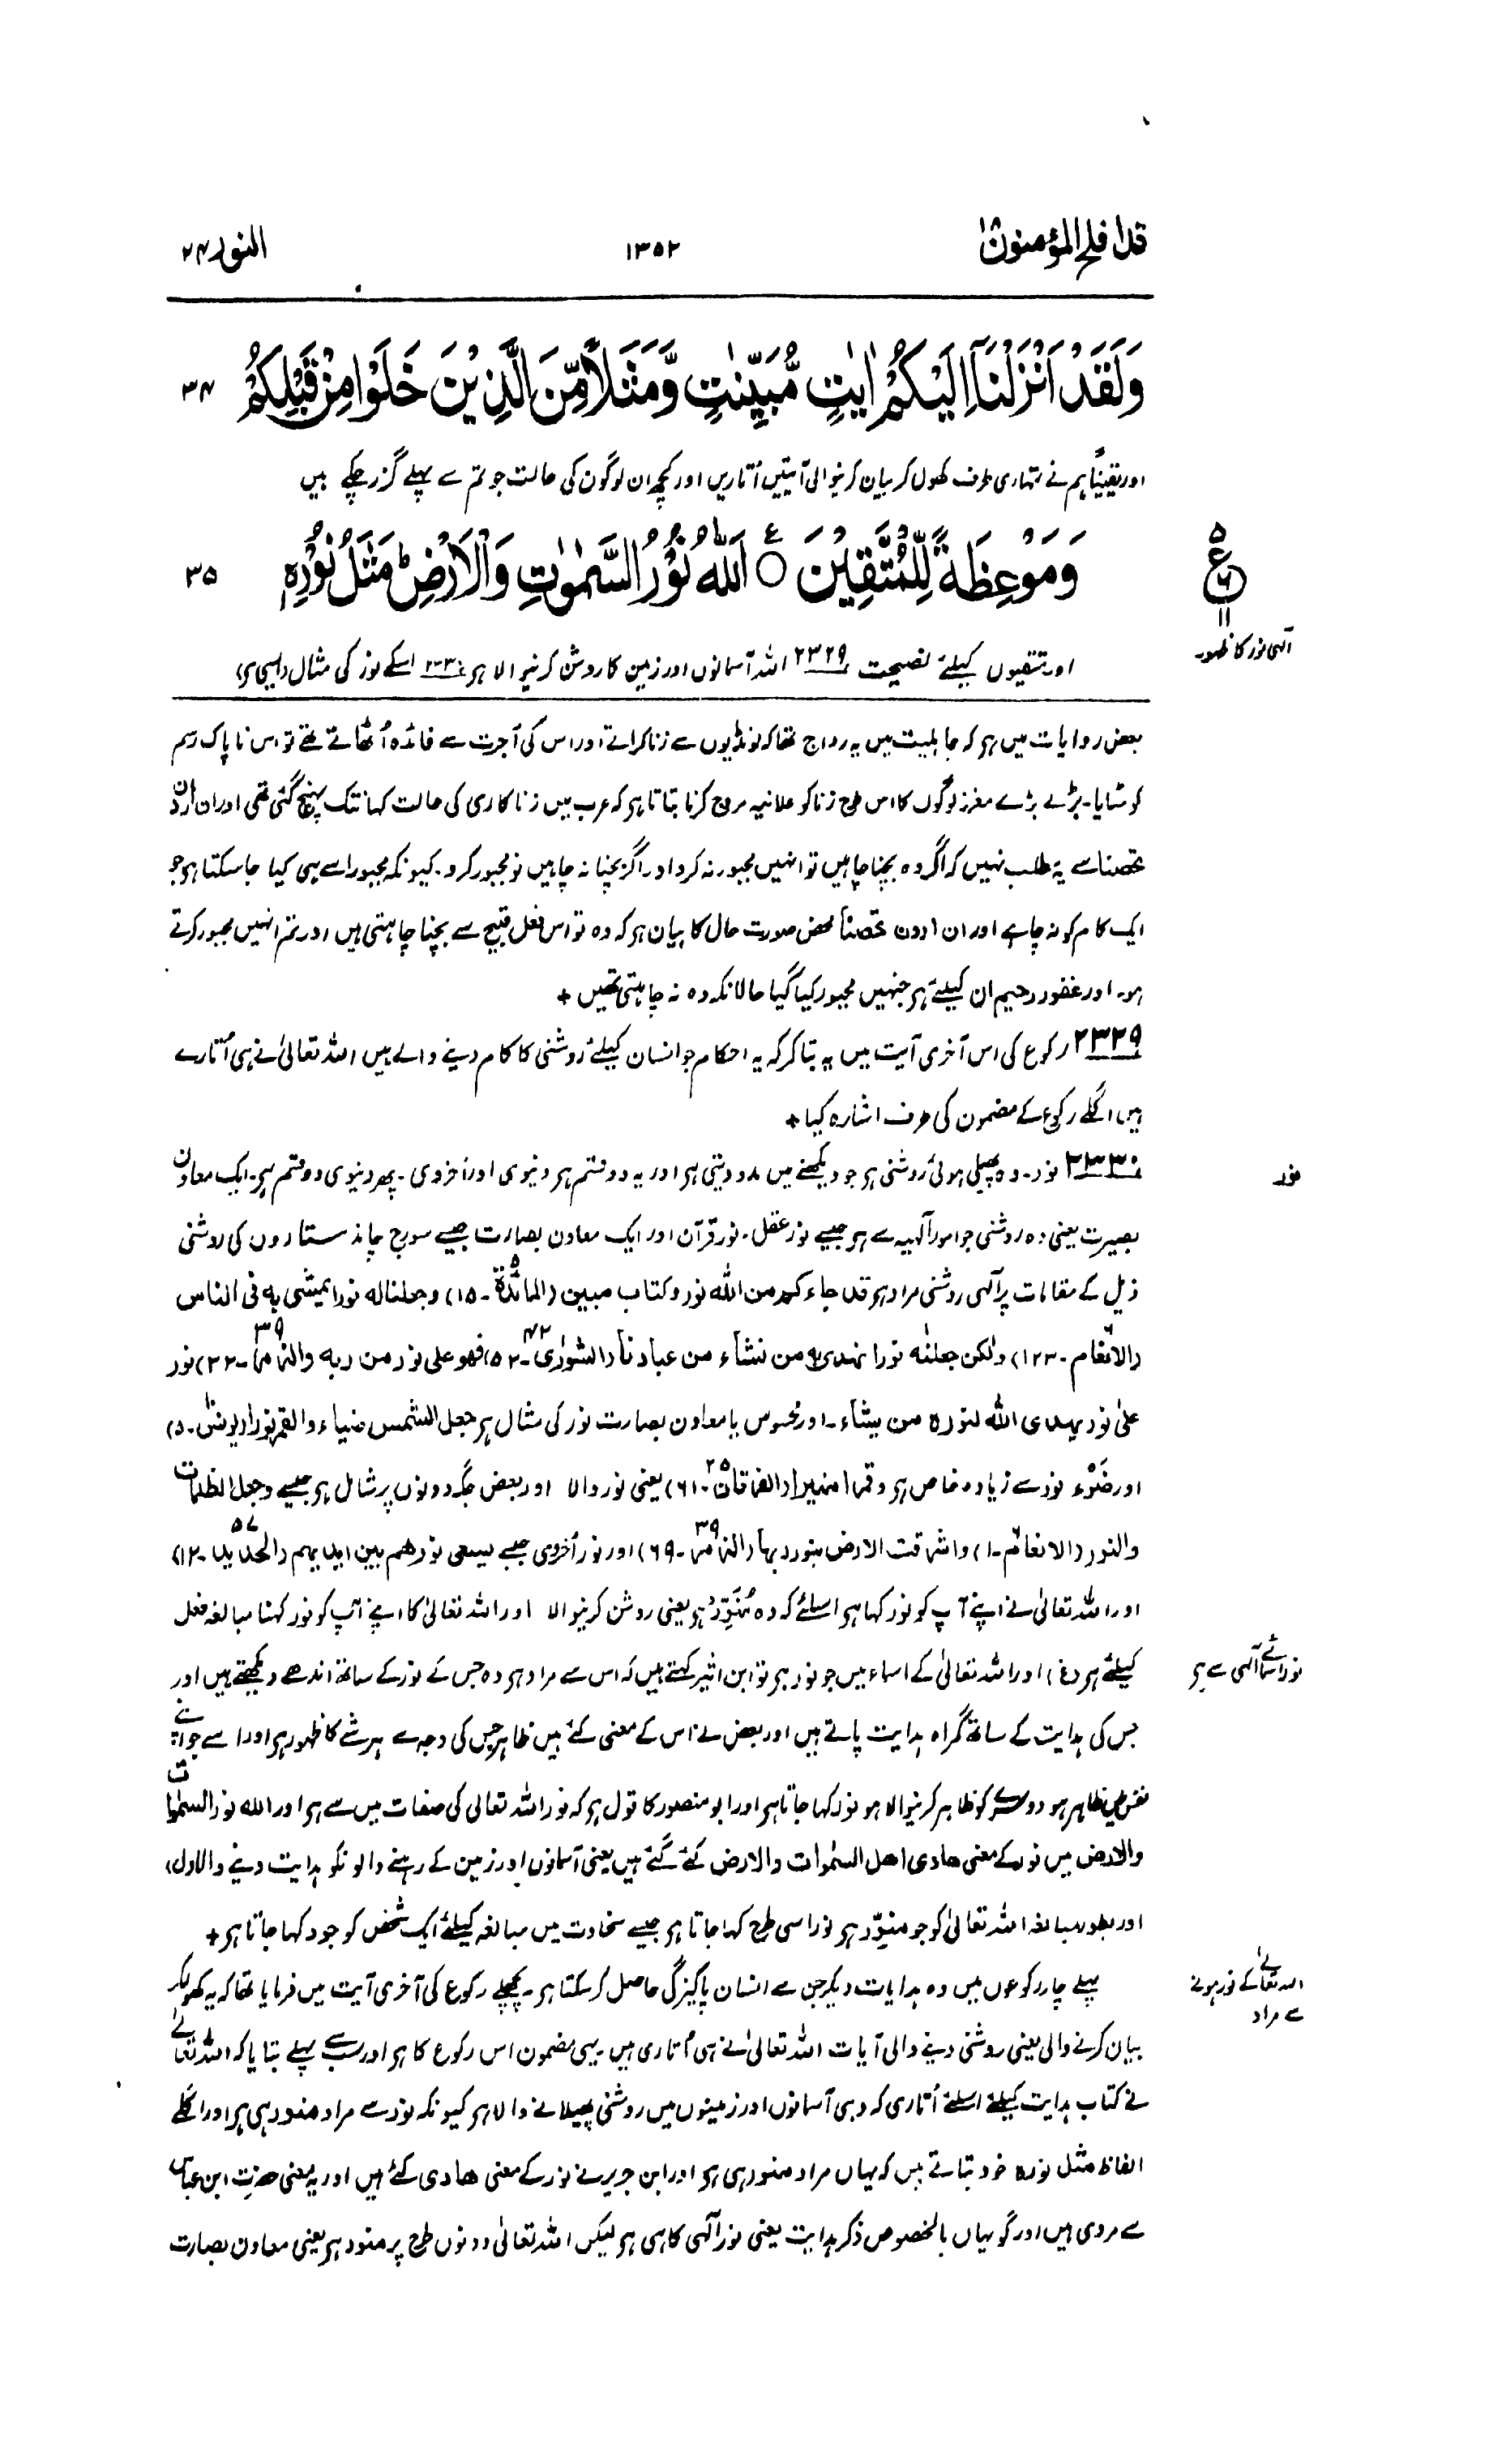 قد افلح المؤمنون ۱۸
۱۳۵۲
النور ۲۴
وَلَقَدْ اَنْزَلْنَاۤ اِلَيْكُمْ اٰيٰتٍ مُّبَيِّنٰتٍ وَّمَثَلًا مِّنَ الَّذِيْنَ خَلَوْا مِنْ قَبْلِكُمْ ۳۴
اور یقیناً ہم نے تمہاری طرف کھول کر بیان کرنیوالی آیتیں اُتاریں اور کچھ ان لوگوں کی حالت جو تم سے پہلے گزر چکے ہیں
وَمَوْعِظَةً لِّلْمُتَّقِيْنَ ○ اَللّٰهُ نُوْرُ السَّمٰوٰتِ وَالْاَرْضِ ؕ مَثَلُ نُوْرِهٖ ۳۵
۵
ع
۶
۱۱
الٰہی نور کا ظہور
اور متقیوں کیلئے نصیحت ۲۳۲۹ اللہ آسمانوں اور زمین کا روشن کرنیوالا ہر ۲۳۳۰ اسکے نور کی مثال (ایسی ہی)
بعض روایات میں ہر کہ جاہلیت میں یہ رواج تھا کہ لونڈیوں سے زنا کراتے اور اس کی اُجرت سے فائدہ اُٹھاتے تھے تو اس ناپاک رسم
کو مٹایا۔ بڑے بڑے معزز لوگوں کا اس طرح زنا کو علانیہ مروج کرنا بتاتا ہر کہ عرب میں زناکاری کی حالت کہانتک پہنچ گئی تھی اور ان اردن
تحصنا سے یہ مطلب نہیں کہ اگر وہ بچنا چاہیں تو انہیں مجبور نہ کرو اور اگر بچنا نہ چاہیں تو مجبور کرو۔ کیونکہ مجبور اسے ہی کیا جا سکتا ہر جو
ایک کام کو نہ چاہے اور ان اردن تحصناً محض صورت حال کا بیان ہر کہ وہ تو اس فعل قبیح سے بچنا چاہتی ہیں اور تم انہیں مجبور کرتے
ہو۔ اور غفور رحیم ان کیلئے ہر جنہیں مجبور کیا گیا حالانکہ وہ نہ چاہتی تھیں +
۲۳۲۹ رکوع کی اس آخری آیت میں یہ بتا کر کہ یہ احکام جو انسان کیلئے روشنی کا کام دینے والے ہیں اللہ تعالیٰ نے ہی اُتارے
ہیں اگلے رکوع کے مضمون کی طرف اشارہ کیا +
۲۳۳۰ نور۔ وہ پھیلی ہوئی روشنی ہر جو دیکھنے میں مدد دیتی ہر اور یہ دو قسم ہر دنیوی اور اُخروی۔ پھر دنیوی دو قسم ہر۔ ایک معاون
نور
بصیرت یعنی وہ روشنی جو امور الٰہیہ سے ہر جیسے نور عقل۔ نور قرآن اور ایک معاون بصارت جیسے سورج چاند ستاروں کی روشنی
ذیل کے مقامات پر الٰہی روشنی مراد ہر قد جاءکم من الله نور وکتاب مبین (المائدة ۵۔ ۱۵) وجعلنا له نورا یمشی به فی الناس
(الانعام ۶۔ ۱۲۳) ولکن جعلنٰه نورا نهدی به من نشاء من عبادنا (الشورٰی ۴۲۔ ۵۲) فهو علی نور من ربه (الزمر ۳۹۔ ۲۲) نور
علی نور یهدی الله لنوره من یشاء۔ اور محسوس یا معاون بصارت نور کی مثال ہر جعل الشمس ضیاء والقمر نورا (یونس ۱۰۔ ۵)
اور ضَوْء نور سے زیادہ خاص ہر وقمرا منیرا (الفرقان ۲۵۔ ۶۱) یعنی نور والا اور بعض جگہ دونوں پر شامل ہر جیسے وجعل الظلمات
والنور (الانعام ۶۔ ۱) واشرقت الارض بنور ربها (الزمر ۳۹۔ ۶۹) اور نور اُخروی جیسے یسعی نورهم بین ایدیهم (الحدید ۵۷۔ ۱۲)
اور اللہ تعالیٰ نے اپنے آپ کو نور کہا ہر اسلئے کہ وہ مُنَوِّر ہر یعنی روشن کرنیوالا اور اللہ تعالیٰ کا اپنے آپ کو نور کہنا مبالغہ فعل
کیلئے ہر (غ) اور اللہ تعالیٰ کے اسماء میں جو نور ہر تو ابن اثیر کہتے ہیں کہ اس سے مراد ہر وہ جس کے نور کے ساتھ اندھے دیکھتے ہیں اور
نور اسمائے الٰہی سے ہر
جس کی ہدایت کے ساتھ گمراہ ہدایت پاتے ہیں اور بعض نے اس کے معنی کئے ہیں ظاہر جس کی وجہ سے ہر شے کا ظہور ہر اور اسے جو اپنے
نفس میں ظاہر ہو دوسرے کو ظاہر کرنیوالا ہو نور کہا جاتا ہر اور ابو منصور کا قول ہر کہ نور اللہ تعالی کی صفات میں سے ہر اور الله نور السمٰوات
والارض میں نور کے معنی هادی اهل السمٰوات والارض کئے گئے ہیں یعنی آسمانوں اور زمین کے رہنے والونکو ہدایت دینے والا (ل)
اور بطور مبالغہ اللہ تعالیٰ کو جو منوّر ہر نور اسی طرح کہا جاتا ہر جیسے سخاوت میں مبالغہ کیلئے ایک شخص کو جود کہا جاتا ہر +
پہلے چار رکوعوں میں وہ ہدایات دیکر جن سے انسان پاکیزگی حاصل کر سکتا ہر۔ پچھلے رکوع کی آخری آیت میں فرمایا تھا کہ یہ کھولکر
اللہ تعالیٰ کے نور ہونے
سے مراد
بیان کرنے والی یعنی روشنی دینے والی آیات اللہ تعالیٰ نے ہی اُتاری ہیں۔ یہی مضمون اس رکوع کا ہر اور سب سے پہلے بتایا کہ اللہ تعالیٰ
نے کتاب ہدایت کیلئے اسلئے اُتاری کہ وہی آسمانوں اور زمینوں میں روشنی پھیلانے والا ہر کیونکہ نور سے مراد منور ہی ہر اور اگلے
الفاظ مثل نوره خود بتاتے ہیں کہ یہاں مراد منور ہی ہر اور ابن جریر نے نور کے معنی هادی کئے ہیں اور یہ معنی حضرت ابن عباس
سے مروی ہیں اور گو یہاں بالخصوص ذکر ہدایت یعنی نور الٰہی کا ہی ہر لیکن اللہ تعالیٰ دونوں طرح پر منور ہر یعنی معاون بصارت